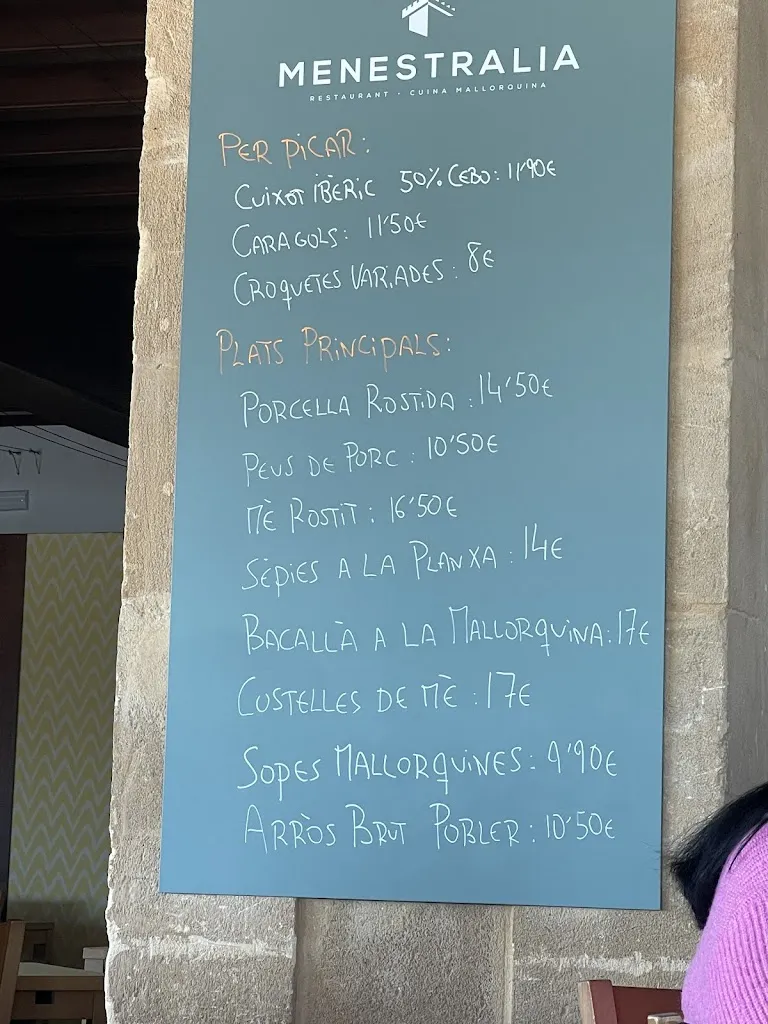 MENESTRALIA
RESTAURANT · CUINA MALLORQUINA
PER PICAR:
CUIXOT IBÈRIC 50% CEBO: 11'90€
CARAGOLS: 11'50€
CROQUETES VARIADES: 8€
PLATS PRINCIPALS:
PORCELLA ROSTIDA: 14'50€
PEUS DE PORC: 10'50€
MÈ ROSTIT: 16'50€
SÈPIES A LA PLANXA: 14€
BACALLÀ A LA MALLORQUINA: 17€
COSTELLES DE MÈ: 17€
SOPES MALLORQUINES: 9'90€
ARRÒS BRUT POBLER: 10'50€